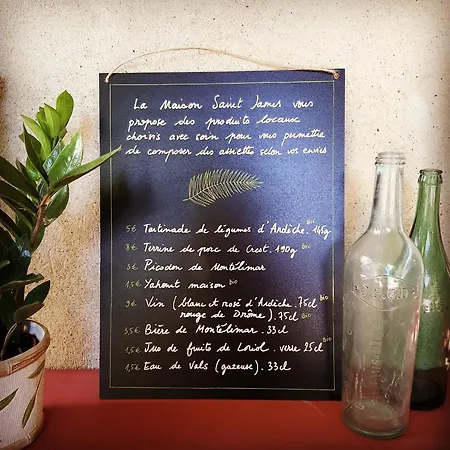 La Maison Saint James vous
propose des produits locaux
choisis avec soin pour vous permettre
de composer des assiettes selon vos envies
5€ Tartinade de légumes d'Ardèche Bio 145g
8€ Terrine de porc de Crest. 190g Bio
3€ Picodon de Montélimar
1,5€ Yahourt maison Bio
9€ Vin (blanc et rosé d'Ardèche. 75cl Bio
rouge de Drôme). 75cl Bio
3,5€ Bière de Montélimar. 33cl
1,5€ Jus de fruits de Loriol. verre 25cl Bio
1,5€ Eau de Vals (gazeuse). 33cl